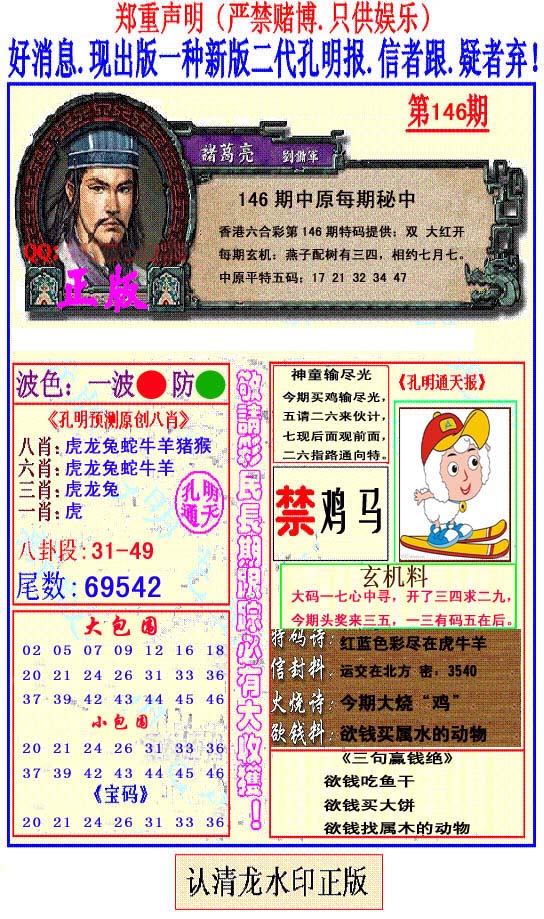 郑重声明（严禁赌博.只供娱乐）
好消息.现出版一种新版二代孔明报.信者跟.疑者弃！
第146期
諸葛亮 劉備軍
146 期中原每期秘中
香港六合彩第 146 期特码提供：双 大红开
每期玄机：燕子配树有三四，相约七月七。
中原平特五码：17 21 32 34 47
QQ:
正版
波色：一波 防
《孔明预测原创八肖》
八肖:虎龙兔蛇牛羊猪猴
六肖:虎龙兔蛇牛羊
三肖:虎龙兔
一肖:虎
孔明
通天
八卦段:31-49
尾数:69542
大包围
02 05 07 09 12 16 18
20 21 24 26 31 33 36
37 39 42 43 44 45 46
小包围
20 21 24 26 31 33 36
37 39 42 43 44 45 46
《宝码》
20 21 24 26 31 33 36
敬請彩民長期跟踪必有大收獲！
神童输尽光
今期买鸡输尽光，
五请二六来伙计，
七现后面观前面，
二六指路通向特。
《孔明通天报》
禁鸡马
玄机料
大码一七心中寻，开了三四求二九，
今期头奖来三五，一三有码五在后。
特码诗：红蓝色彩尽在虎牛羊
信封料：运交在北方 密：3540
火烧诗：今期大烧“鸡”
欲钱料：欲钱买属水的动物
《三句赢钱绝》
欲钱吃鱼干
欲钱买大饼
欲钱找属木的动物
认清龙水印正版